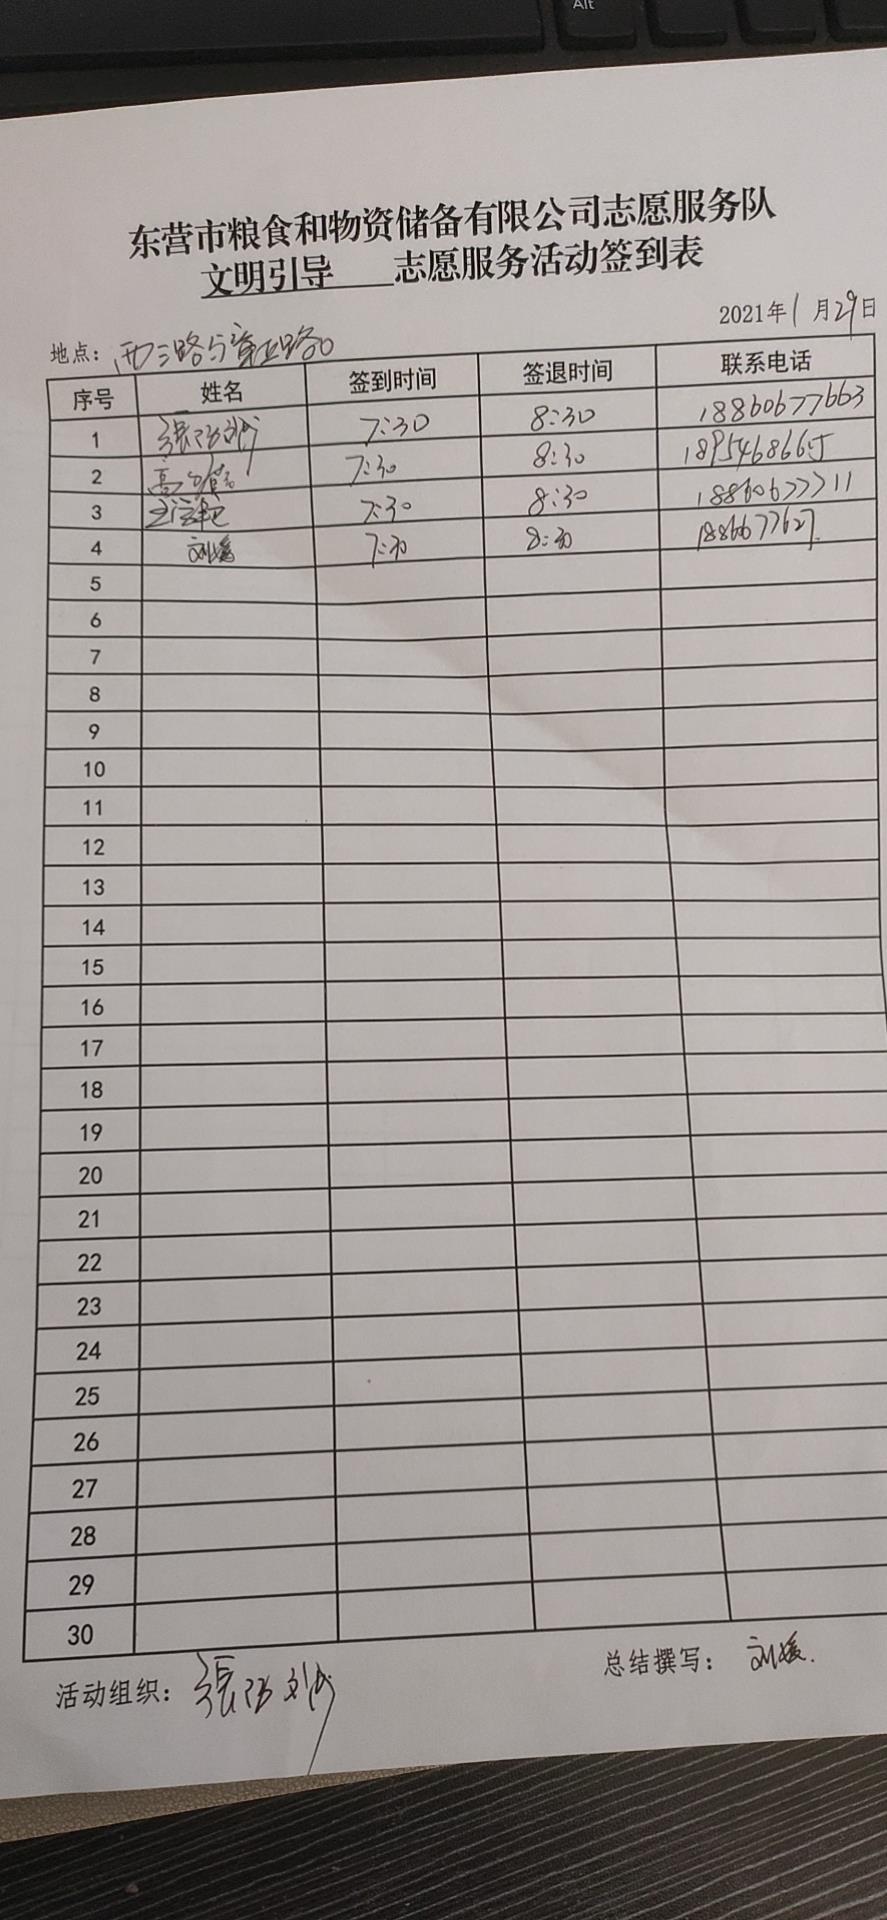 Alt
东营市粮食和物资储备有限公司志愿服务队
文明引导 志愿服务活动签到表
2021年1月29日
地点：西二路与黄五路口
序号 姓名 签到时间 签退时间 联系电话
1 7:30 8:30 18860677663
2 7:30 8:30 18954686655
3 7:30 8:30 18860677711
4 刘媛 7:30 8:30 1886677627
5
6
7
8
9
10
11
12
13
14
15
16
17
18
19
20
21
22
23
24
25
26
27
28
29
30
活动组织： 总结撰写：刘媛.